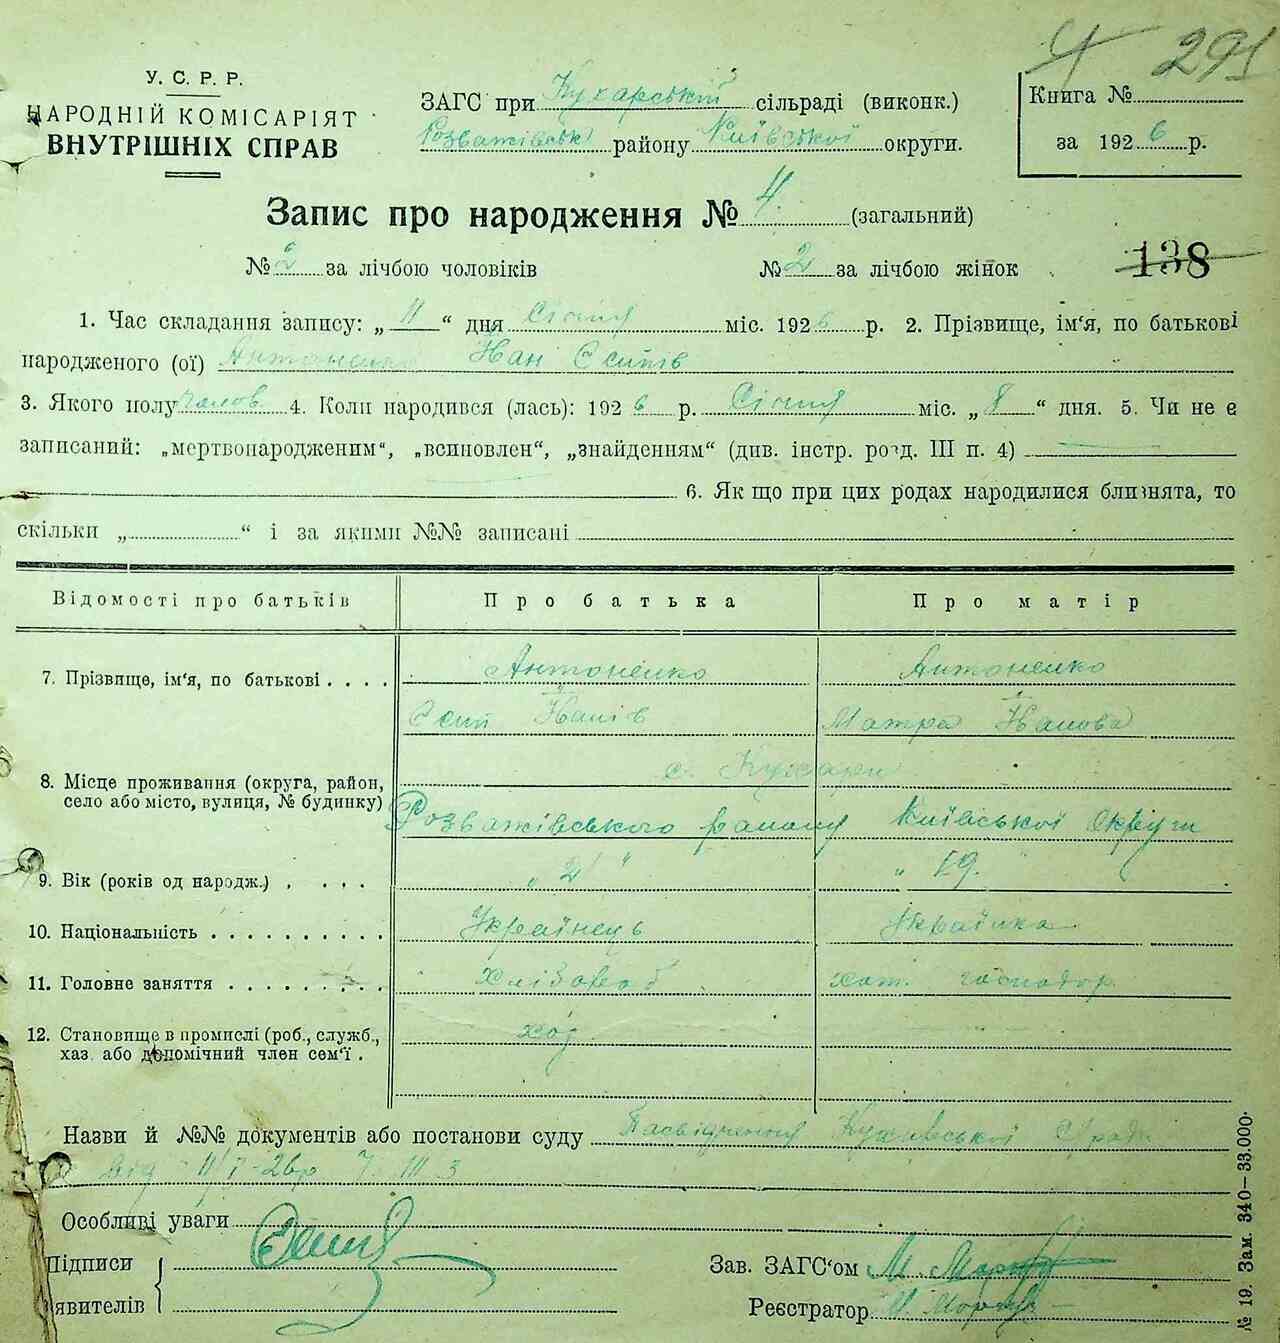 291
У. С. Р. Р.
НАРОДНІЙ КОМІСАРІЯТ
ВНУТРІШНІХ СПРАВ
ЗАГС при Кухарській сільраді (виконк.)
Розважівськ району Київської округи.
Книга №
за 1926 р.
Запис про народження № 4. (загальний)
№ 2 за лічбою чоловіків № 2 за лічбою жінок
138
1. Час складання запису: „11“ дня Січня міс. 1926 р. 2. Прізвище, ім‘я, по батькові
народженого (ої) Антоненко Іван Єсипів
3. Якого полу чолов 4. Коли народився (лась): 1926 р. Січня міс. „8“ дня. 5. Чи не є
записаний: „мертвонародженим“, „всиновлен“, „знайденням“ (див. інстр. розд. III п. 4)
6. Як що при цих родах народилися близнята, то
скільки „ “ і за якими №№ записані
Відомості про батьків Про батька Про матір
7. Прізвище, ім‘я, по батькові . . . . Антоненко Антоненко
Єсип Іванів Мотря Іванова
с. Кухари
8. Місце проживання (округа, район,
село або місто, вулиця, № будинку) Розважівського району Київської округи
9. Вік (років од народж.) . . . . „ 21 “ „ 19.
10. Національність . . . . . . . . . . Українець Українка
11. Головне заняття . . . . . . . . . Хлібороб хат. господар.
12. Становище в промислі (роб., служб.,
хаз. або допомічний член сем‘ї .
Назви й №№ документів або постанови суду Посвідчення
від 11/I-26р
Особливі уваги
Підписи
явителів
Зав. ЗАГС‘ом М.
Реєстратор М.
№ 19. Зам. 340—33.000.